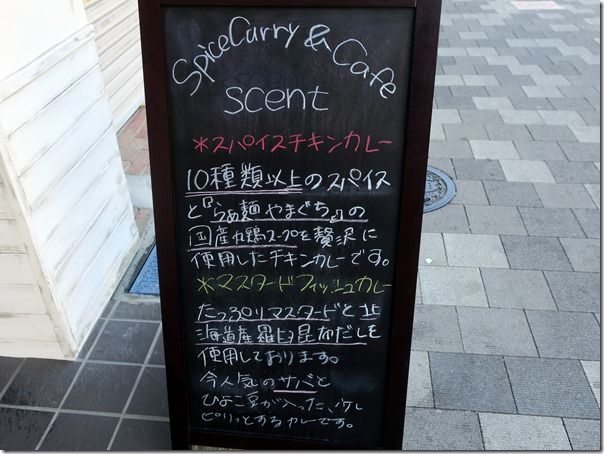 Spice Curry & Cafe
scent
*スパイスチキンカレー
10種類以上のスパイス
と『らぁ麺やまぐち』の
国産丸鶏スープを贅沢に
使用したチキンカレーです。
*マスタードフィッシュカレー
たっぷりマスタードと北
海道産羅臼昆布だしを
使用しております。
今人気のサバと
ひよこ豆が入った、少し
ピリッとするカレーです。